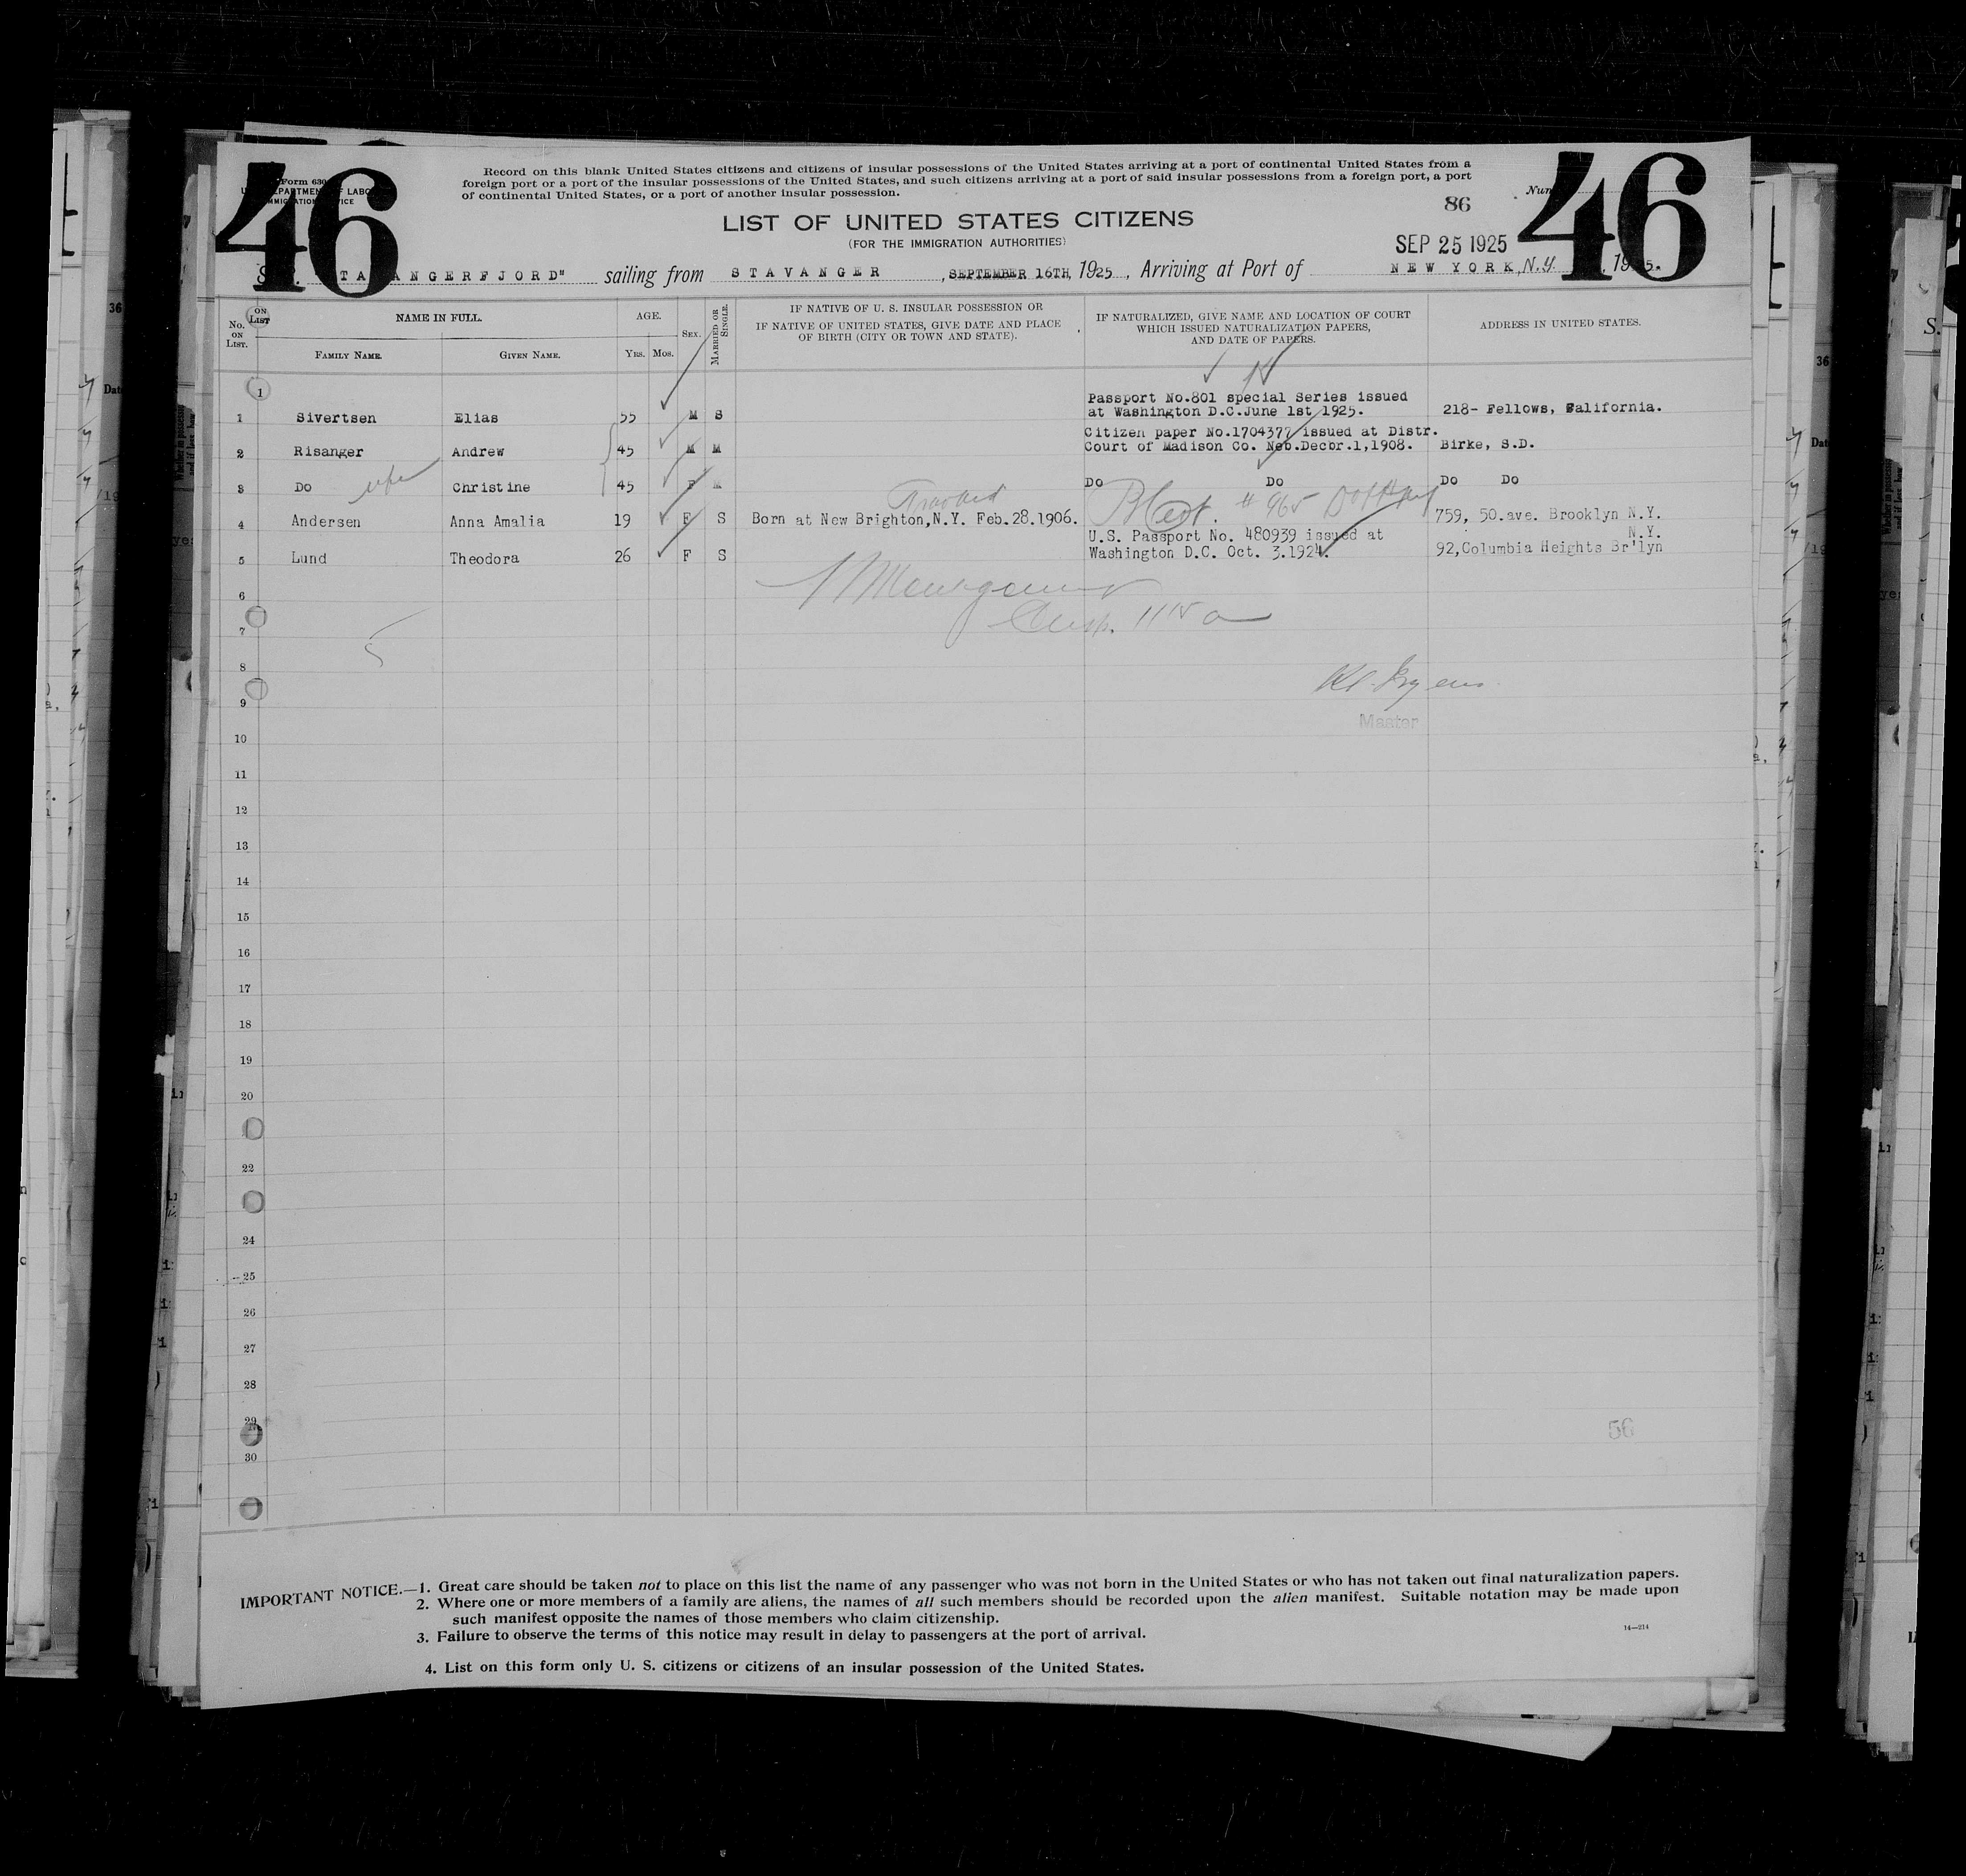 46
46
Form 630
Record on this blank United States citizens and citizens of insular possessions of the United States arriving at a port of continental United States from a
foreign port or a port of the insular possessions of the United States, and such citizens arriving at a port of said insular possessions from a foreign port, a port
of continental United States, or a port of another insular possession.
86
LIST OF UNITED STATES CITIZENS
(FOR THE IMMIGRATION AUTHORITIES)
SEP 25 1925
STAVANGERFJORD" sailing from STAVANGER, SEPTEMBER 16TH, 1925, Arriving at Port of NEW YORK, N.Y.
No. ON LIST. ON LIST NAME IN FULL. AGE. SEX. MARRIED OR SINGLE. IF NATIVE OF U. S. INSULAR POSSESSION OR
IF NATIVE OF UNITED STATES, GIVE DATE AND PLACE
OF BIRTH (CITY OR TOWN AND STATE). IF NATURALIZED, GIVE NAME AND LOCATION OF COURT
WHICH ISSUED NATURALIZATION PAPERS,
AND DATE OF PAPERS. ADDRESS IN UNITED STATES.
FAMILY NAME. GIVEN NAME. YRS. MOS.
1
Passport No.801 special Series issued
1 Sivertsen Elias 55 M S at Washington D.C.June 1st 1925. 218- Fellows, California.
Citizen paper No.1704377 issued at Distr.
2 Risanger Andrew 45 M M Court of Madison Co. Neb.Decbr.1,1908. Birke, S.D.
3 Do wife Christine 45 F M Do Do Do Do
4 Andersen Anna Amalia 19 F S Born at New Brighton,N.Y. Feb.28.1906. # 965 759, 50.ave. Brooklyn N.Y.
U.S. Passport No. 480939 issued at N.Y.
5 Lund Theodora 26 F S Washington D.C. Oct. 3.1924. 92,Columbia Heights Br'lyn
6
7
5
8
9
Master
10
11
12
13
14
15
16
17
18
19
20
22
24
25
26
27
28
29
56
30
IMPORTANT NOTICE.—1. Great care should be taken not to place on this list the name of any passenger who was not born in the United States or who has not taken out final naturalization papers.
2. Where one or more members of a family are aliens, the names of all such members should be recorded upon the alien manifest. Suitable notation may be made upon
such manifest opposite the names of those members who claim citizenship.
3. Failure to observe the terms of this notice may result in delay to passengers at the port of arrival.
14—214
4. List on this form only U. S. citizens or citizens of an insular possession of the United States.